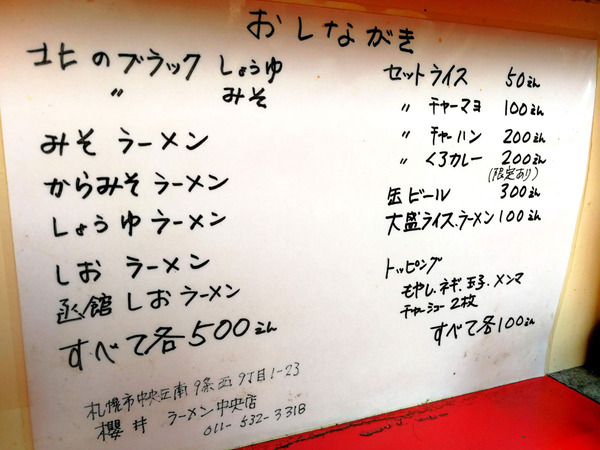 おしながき
北のブラック しょうゆ
〃 みそ
みそラーメン
からみそラーメン
しょうゆラーメン
しおラーメン
函館しおラーメン
すべて各500えん
札幌市中央区南9条西9丁目1-23
櫻井 ラーメン中央店
011-532-3318
セットライス 50えん
〃 チャーマヨ 100えん
〃 チャーハン 200えん
〃 くろカレー 200えん
(限定あり)
缶ビール 300えん
大盛ライス、ラーメン100えん
トッピング
もやし、ネギ、玉子、メンマ
チャーシュー2枚
すべて各100えん